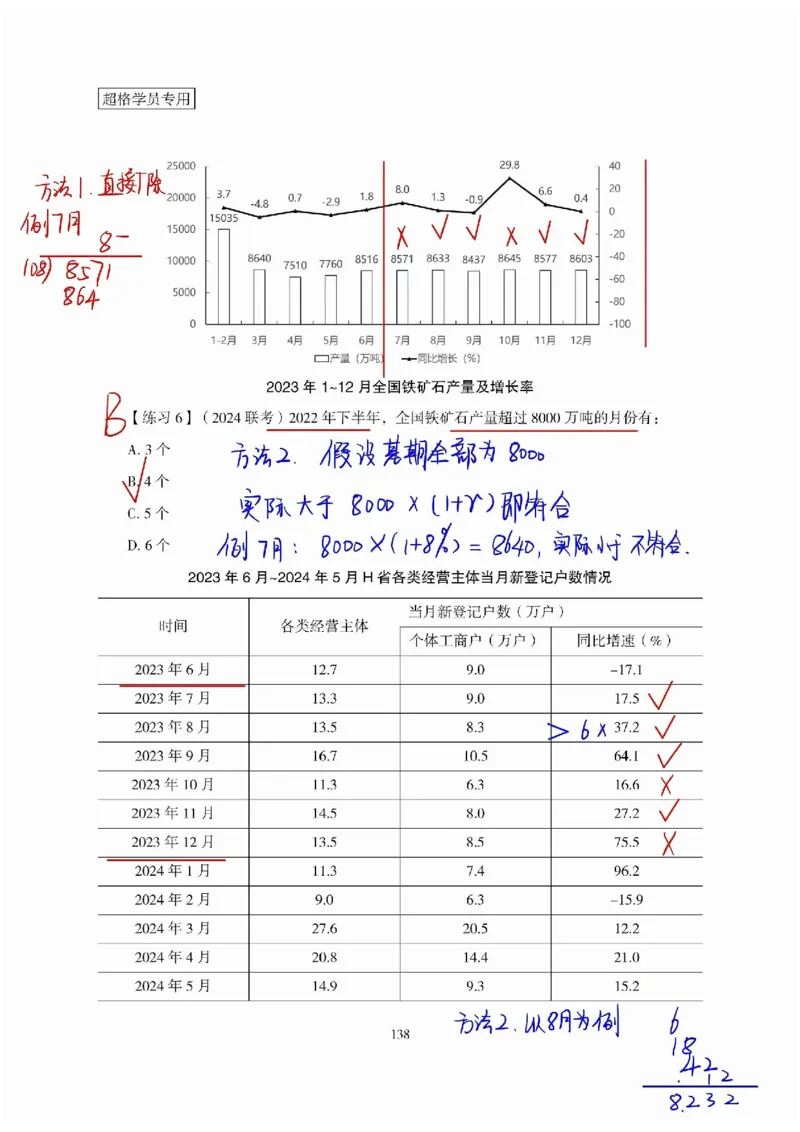 超格学员专用
方法1.直接下除
例7月
8-
108) 8571
864
25000 20000 15000 10000 5000 0
40 20 0 -20 -40 -60 -80 -100
3.7 -4.8 0.7 -2.9 1.8 8.0 1.3 -0.9 29.8 6.6 0.4
15035 8640 7510 7760 8516 8571 8633 8437 8645 8577 8603
× √ √ × √ √
1-2月 3月 4月 5月 6月 7月 8月 9月 10月 11月 12月
产量（万吨） 同比增长（%）
2023 年 1~12 月全国铁矿石产量及增长率
B【练习 6】（2024 联考）2022 年下半年，全国铁矿石产量超过 8000 万吨的月份有：
A. 3 个
方法2. 假设基期全部为 8000
B. 4 个
C. 5 个
实际大于 8000 × (1+r) 即符合
D. 6 个
例7月: 8000×(1+8%) = 8640, 实际小于 不符合.
2023 年 6 月~2024 年 5 月 H 省各类经营主体当月新登记户数情况
时间 各类经营主体 当月新登记户数（万户）
个体工商户（万户） 同比增速（%）
2023 年 6 月 12.7 9.0 –17.1
2023 年 7 月 13.3 9.0 17.5 √
2023 年 8 月 13.5 8.3 > 6 × 37.2 √
2023 年 9 月 16.7 10.5 64.1 √
2023 年 10 月 11.3 6.3 16.6 ×
2023 年 11 月 14.5 8.0 27.2 √
2023 年 12 月 13.5 8.5 75.5 ×
2024 年 1 月 11.3 7.4 96.2
2024 年 2 月 9.0 6.3 –15.9
2024 年 3 月 27.6 20.5 12.2
2024 年 4 月 20.8 14.4 21.0
2024 年 5 月 14.9 9.3 15.2
方法2. 以8月为例
6
18
.42
.12
8.232
138